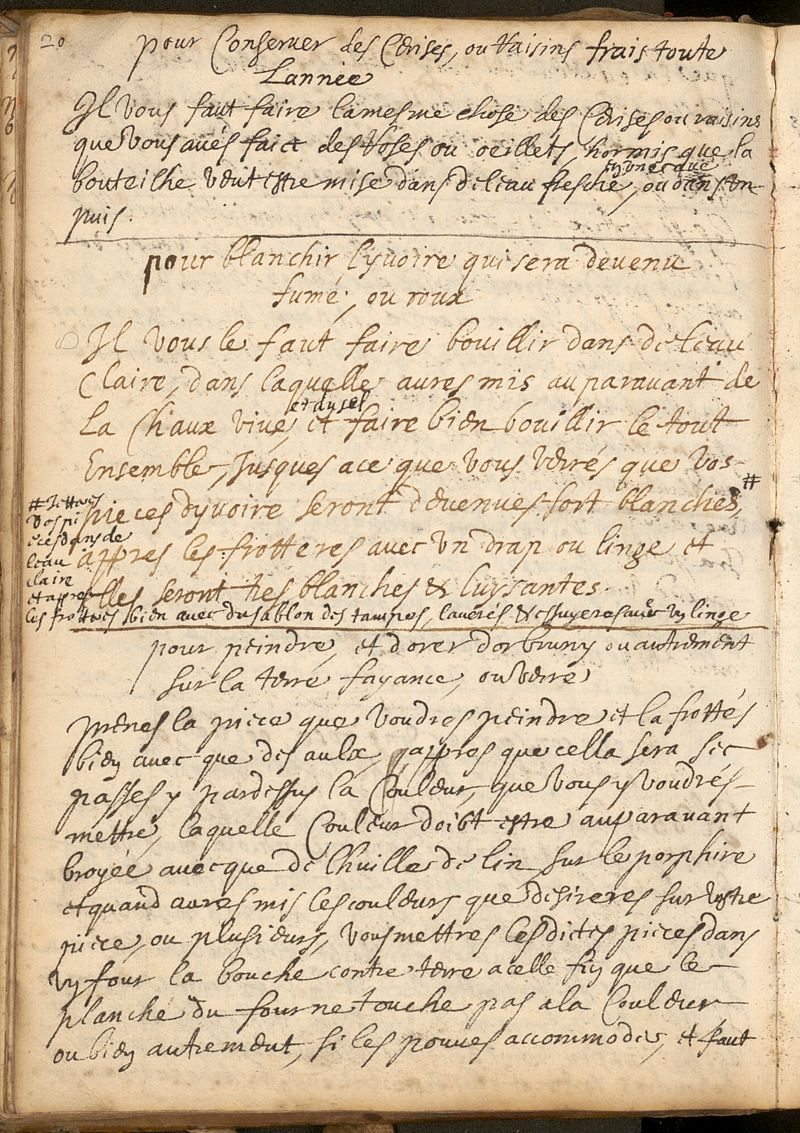 20
pour Conseruer des Cerises, ou Raisins frais toute
Lannee
Il vous faut faire la mesme chose des Cerises ou raisins
que vous aués faict des Roses ou oeillets, hormis que la
bouteilhe veut estre mise dans de leau fresche, ou dans vn
puis.
pour blanchir lyuoire qui sera deuenu
fumé, ou roux
Il vous le faut faire bouillir dans de leau
Claire, dans laquelle aures mis auparauant de
et du sel
La Chaux viue, et faire bien bouillir le tout
Ensemble, Jusques a ce que vous verrés que vos
pieces dyuoire seront deuenues fort blanches, #
appres les frotteres auec vn drap ou linge et
elles seront tres blanches & luysantes.
# Jettres
vos pi
eces dans de
leau
claire
et apres
les frottres bien auec du sablon des tampes, laueres & essuyeres auec vn linge
pour peindre, et dorer dor bruny ou autrement
sur la terre fayance, ou verre
prenes la piece que voudres peindre et la frottés
bien auec que des aulx, & appres que cella sera sec
passes y pardessus la Couleur, que vous y voudrés
mettre, laquelle Couleur doibt estre auparauant
broyée auecque de lhuille de lin sur le porphire
et quand aures mis les couleurs que desireres sur vostre
piece, ou plusieurs, vous mettres lesdictes pieces dans
vn four la bouche contre terre a celle fin que le
planché du four ne touche pas a la Couleur
ou bien autrement, si les pouues accommoder, et faut